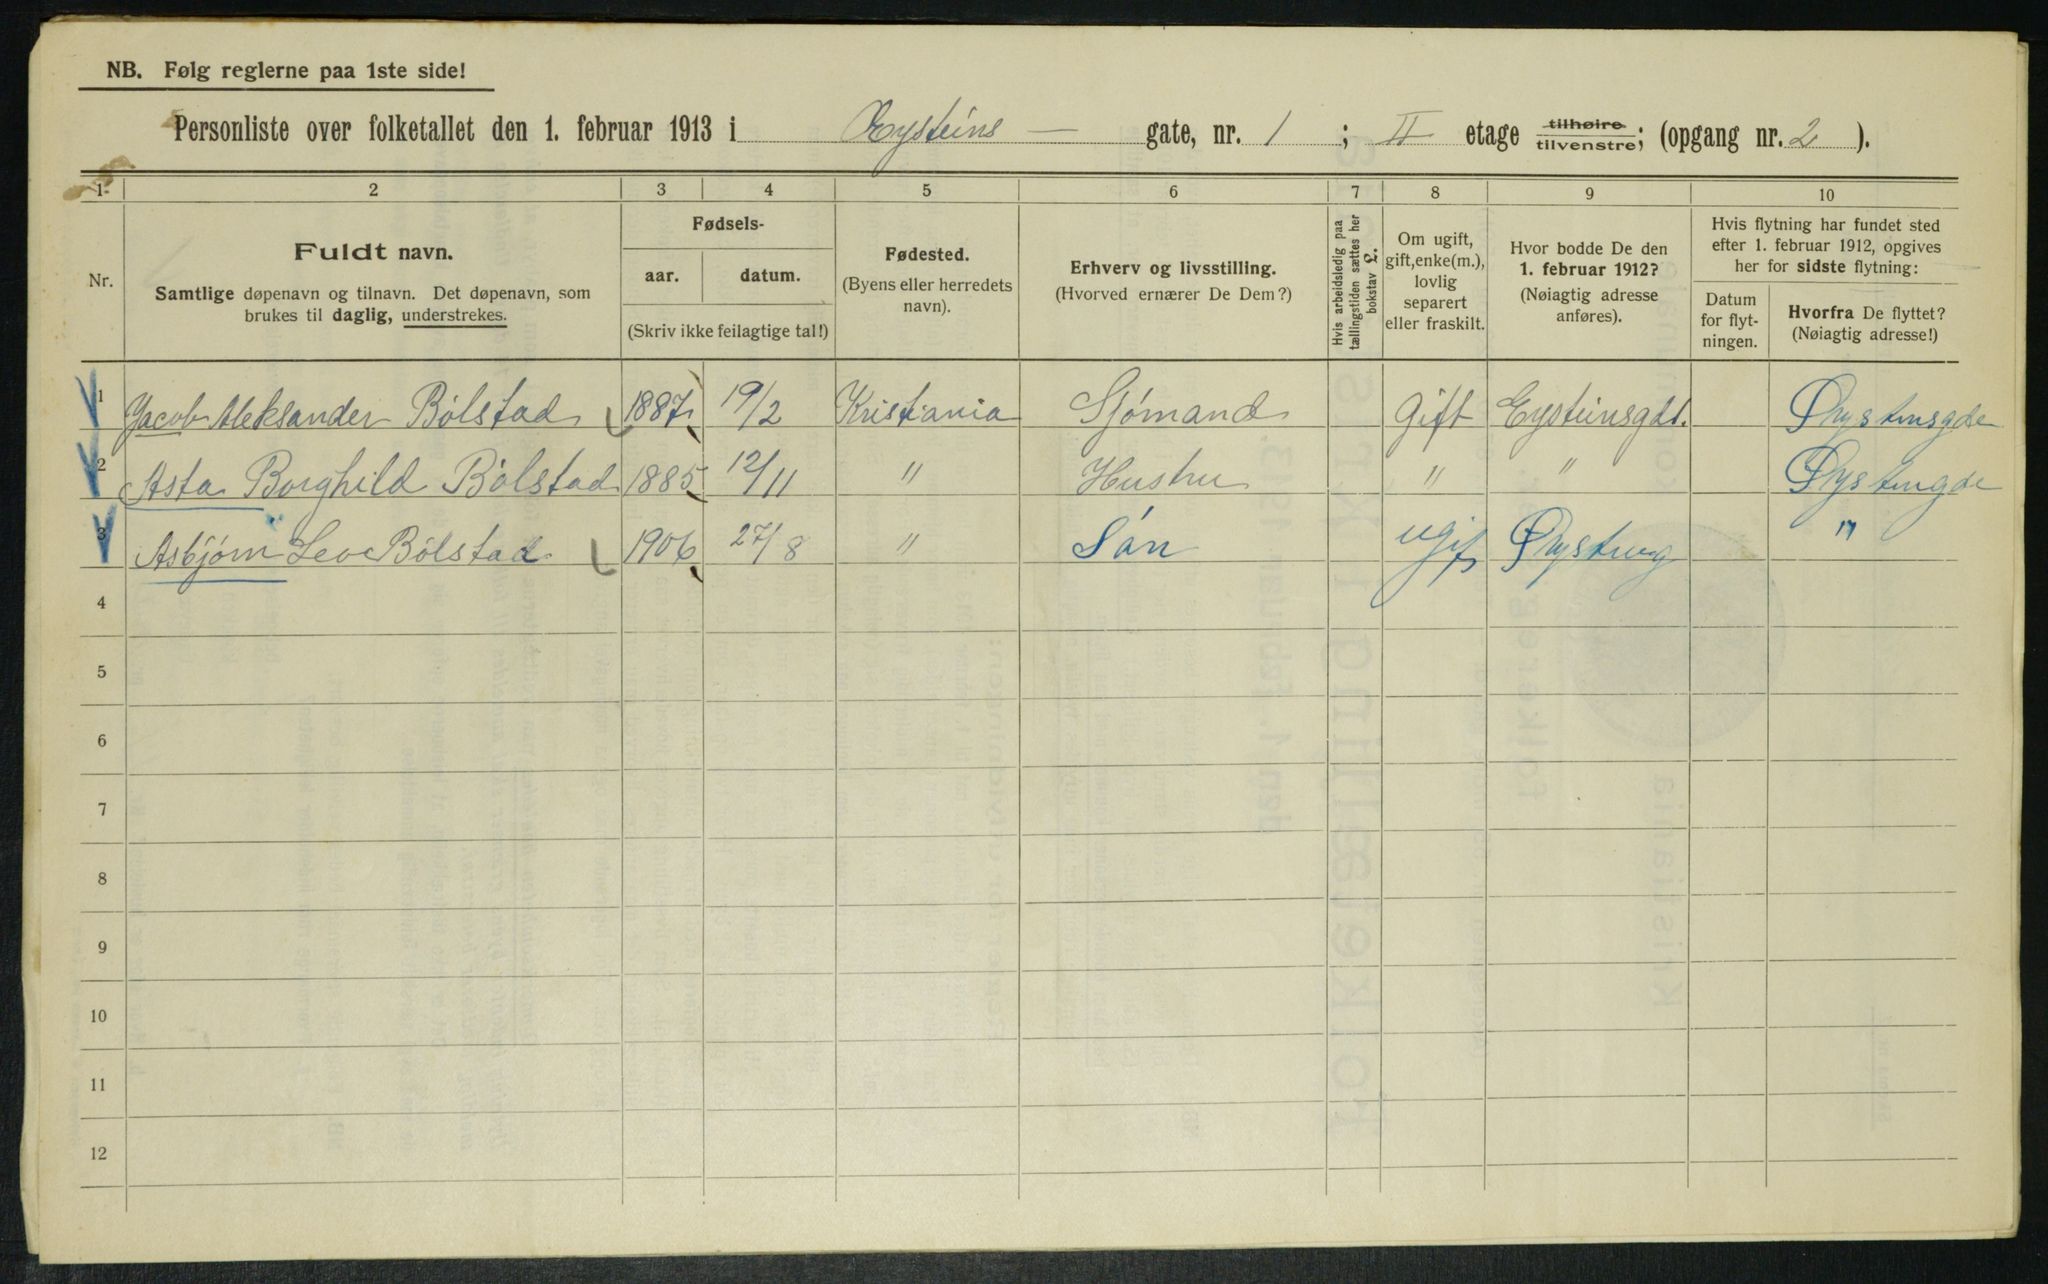 NB. Følg reglerne paa 1ste side!
Personliste over folketallet den 1. februar 1913 i Eysteins — gate, nr. 1 ; II etage tilhøire tilvenstre; (opgang nr. 2 ).
1 2 3 4 5 6 7 8 9 10
Nr.
Fuldt navn.
Samtlige døpenavn og tilnavn. Det døpenavn, som
brukes til daglig, understrekes.
Fødsels-
aar. datum.
(Skriv ikke feilagtige tal!)
Fødested.
(Byens eller herredets
navn).
Erhverv og livsstilling.
(Hvorved ernærer De Dem?)
Hvis arbeidsledig paa
tællingstiden sættes her
bokstav L.
Om ugift,
gift, enke(m.),
lovlig
separert
eller fraskilt.
Hvor bodde De den
1. februar 1912?
(Nøiagtig adresse
anføres).
Hvis flytning har fundet sted
efter 1. februar 1912, opgives
her for sidste flytning:
Datum
for flyt-
ningen.
Hvorfra De flyttet?
(Nøiagtig adresse!)
1 Jacob Aleksander Bölstad 1887 19/2 Kristiania Sjömand Gift Eysteinsgdt.
2 Asta Borghild Bölstad 1885 12/11 " Hustru " "
3 Asbjørn Leo Bölstad 1906 27/8 " Sön ugift "
4
5
6
7
8
9
10
11
12